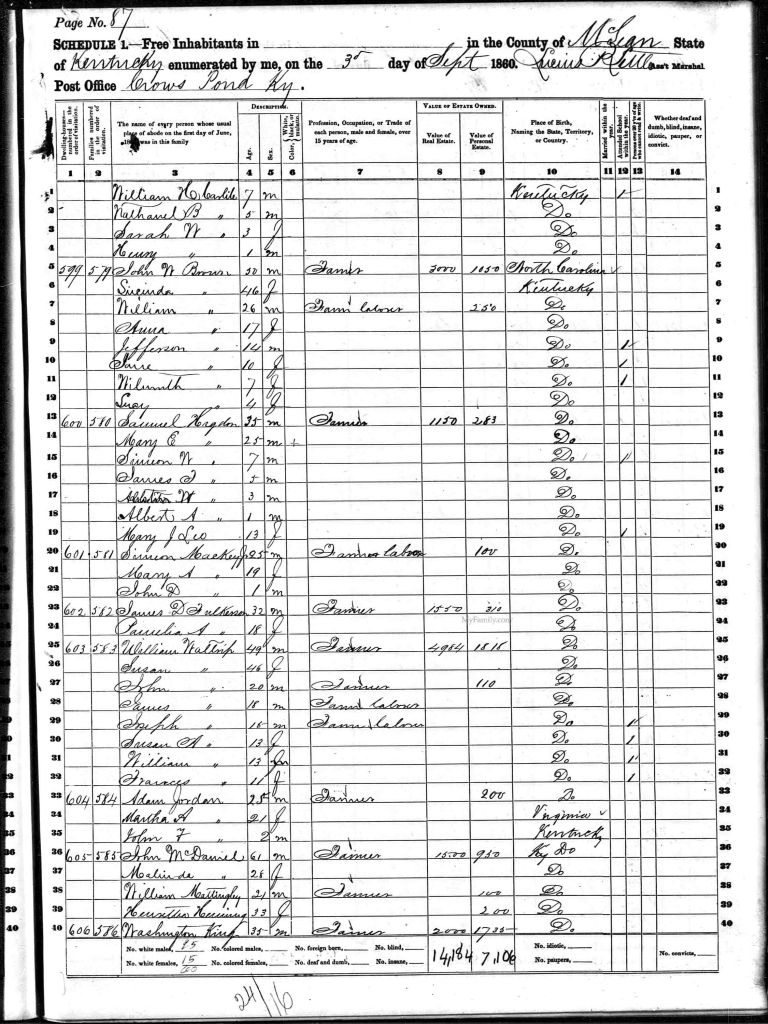 Page No. 87
SCHEDULE 1.—Free Inhabitants in in the County of McLean State
of Kentucky enumerated by me, on the 3d day of Sept 1860. Ass't Marshal
Post Office Crows Pond Ky.
DESCRIPTION. VALUE OF ESTATE OWNED.
Dwelling-houses—numbered in the order of visitation. Families numbered in the order of visitation. The name of every person whose usual place of abode on the first day of June, 1860, was in this family Age. Sex. Color, White, black, or mulatto. Profession, Occupation, or Trade of each person, male and female, over 15 years of age. Value of Real Estate. Value of Personal Estate. Place of Birth, Naming the State, Territory, or Country. Married within the year. Attended School within the year. Persons over 20 y'rs of age who cannot read & write. Whether deaf and dumb, blind, insane, idiotic, pauper, or convict.
1 2 3 4 5 6 7 8 9 10 11 12 13 14
1 William H Carlile 7 m Kentucky 1 1
2 Nathaniel B " 5 m Do 2
3 Sarah W " 3 f Do 3
4 Henry " 1 m Do 4
5 599 579 John W 50 m Farmer 3000 1050 North Carolina 5
6 Lucinda " 46 f Kentucky 6
7 William " 26 m Farm laborer 250 Do 7
8 Anna " 17 f Do 8
9 Jefferson " 14 m Do 1 9
10 " 10 f Do 1 10
11 " 7 f Do 1 11
12 Lucy " 4 f Do 12
13 600 580 Samuel Higdon 35 m Farmer 1150 283 Do 13
14 Mary E " 25 m + Do 14
15 Simeon W " 7 m Do 1 15
16 James " 5 m Do 16
17 W " 3 m Do 17
18 Albert A " 1 m Do 18
19 Mary J Leo 13 f Do 1 19
20 601 581 Simeon Mackey 25 m Farm labor 100 Do 20
21 Mary A " 19 f Do 21
22 John D " 1 m Do 22
23 602 582 James D Fulkerson 32 m Farmer 1550 310 Do 23
MyFamily.com
24 Pamelia A " 18 f Do 24
25 603 583 William Waltrip 49 m Farmer 4984 1818 Do 25
26 Susan " 46 f Do 26
27 John " 20 m Farmer 110 Do 27
28 James " 18 m Farm laborer Do 28
29 Joseph " 16 m Farm laborer Do 1 29
30 Susan A " 13 f Do 1 30
31 William " 13 m Do 1 31
32 Frances " 11 f Do 1 32
33 604 584 Adam Jordan 25 m Farmer 200 Do 33
34 Martha A " 21 f Virginia 34
35 John F " 2 m Kentucky 35
36 605 585 John McDaniel 61 m Farmer 1500 950 Ky Do 36
37 Malinda " 28 f Do 37
38 William Mattingley 21 m Farmer 100 Do 38
39 33 f 200 Do 39
40 606 586 Washington King 35 m Farmer 2000 1735 Do 40
No. white males, 25 No. colored males, No. foreign born, No. blind, 14,184 7,106 No. idiotic, No. convicts,
No. white females, 15 No. colored females, No. deaf and dumb, No. insane, No. paupers,
24/16